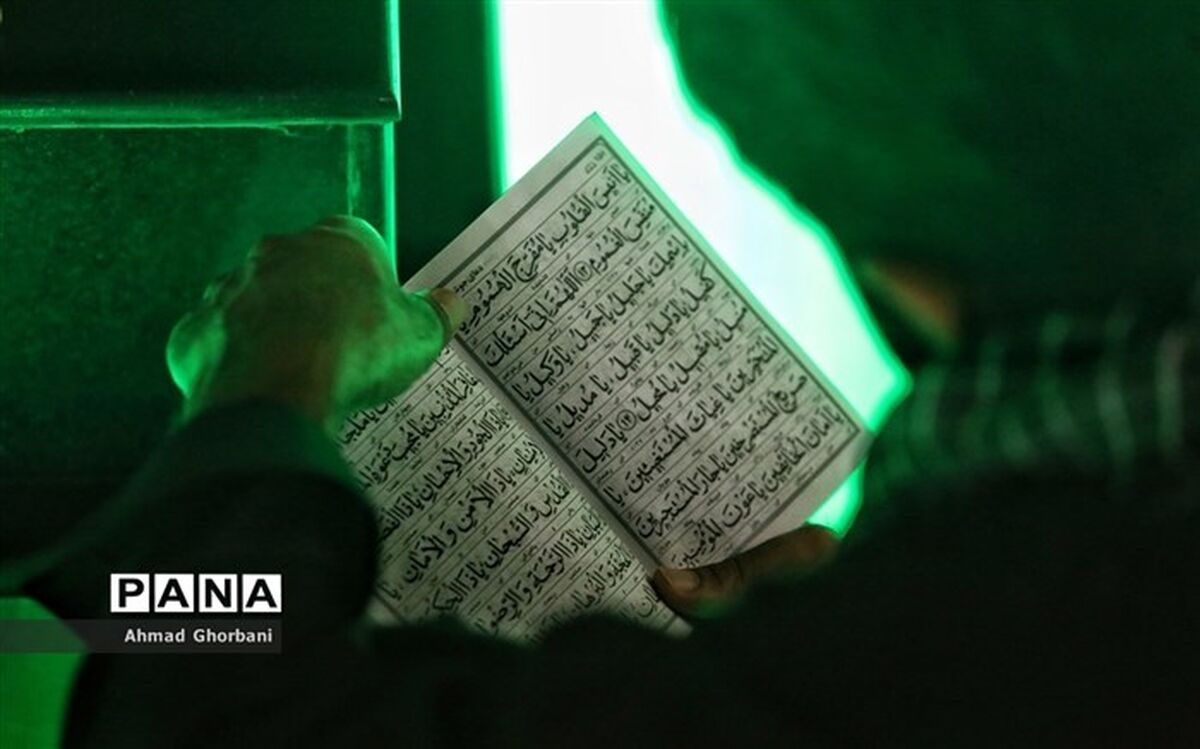 يَا اَنِيسَ الْقُلُوبِ يَا مُفَرِّجَ الْهُمُومِ يَا
مُنَفِّسَ الْغُمُومِ ﴿۱۲﴾ اَللّٰهُمَّ اِنّى اَسْئَلُكَ
بِاسْمِكَ يَا جَلِيلُ يَا جَمِيلُ يَا وَكِيلُ يَا
كَفِيلُ يَا دَلِيلُ يَا قَبِيلُ يَا مُدِيلُ يَا
مُنِيلُ يَا مُقِيلُ يَا مُحِيلُ ﴿۱۳﴾ يَا دَلِيلَ
الْمُتَحَيِّرِينَ يَا غِيَاثَ الْمُسْتَغِيثِينَ يَا
صَرِيخَ الْمُسْتَصْرِخِينَ يَا جَارَ الْمُسْتَجِيرِينَ
يَا اَمَانَ الْخَائِفِينَ يَا عَوْنَ الْمُؤْمِنِينَ
يَا مَلْجَأَ
الْمُذْنِبِينَ يَا مُجِيبَ دَعْوَةِ
يَا ذَا الْجُودِ وَالْاِحْسَانِ يَا ذَا
يَا ذَا الْاَمْنِ وَ الْاَمَانِ يَا
الْقُدْسِ وَ السُّبْحَانِ يَا ذَا
يَا ذَا الرَّحْمَةِ وَ
وَ الْبُرْهَانِ
PANA
Ahmad Ghorbani